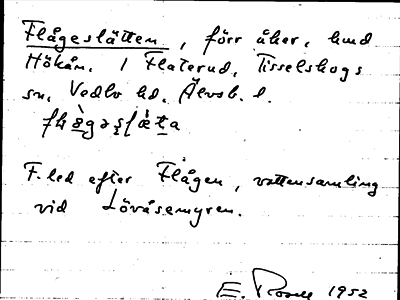 Flågeslätten, förr åker, hmd
Hökån. 1 Flaterud, Tisselskogs
sn, Vedbo hd, Älvsb. l.
F.led efter Flågen, vattensamling
vid Lövåsemyren.
E. Rosell 1952